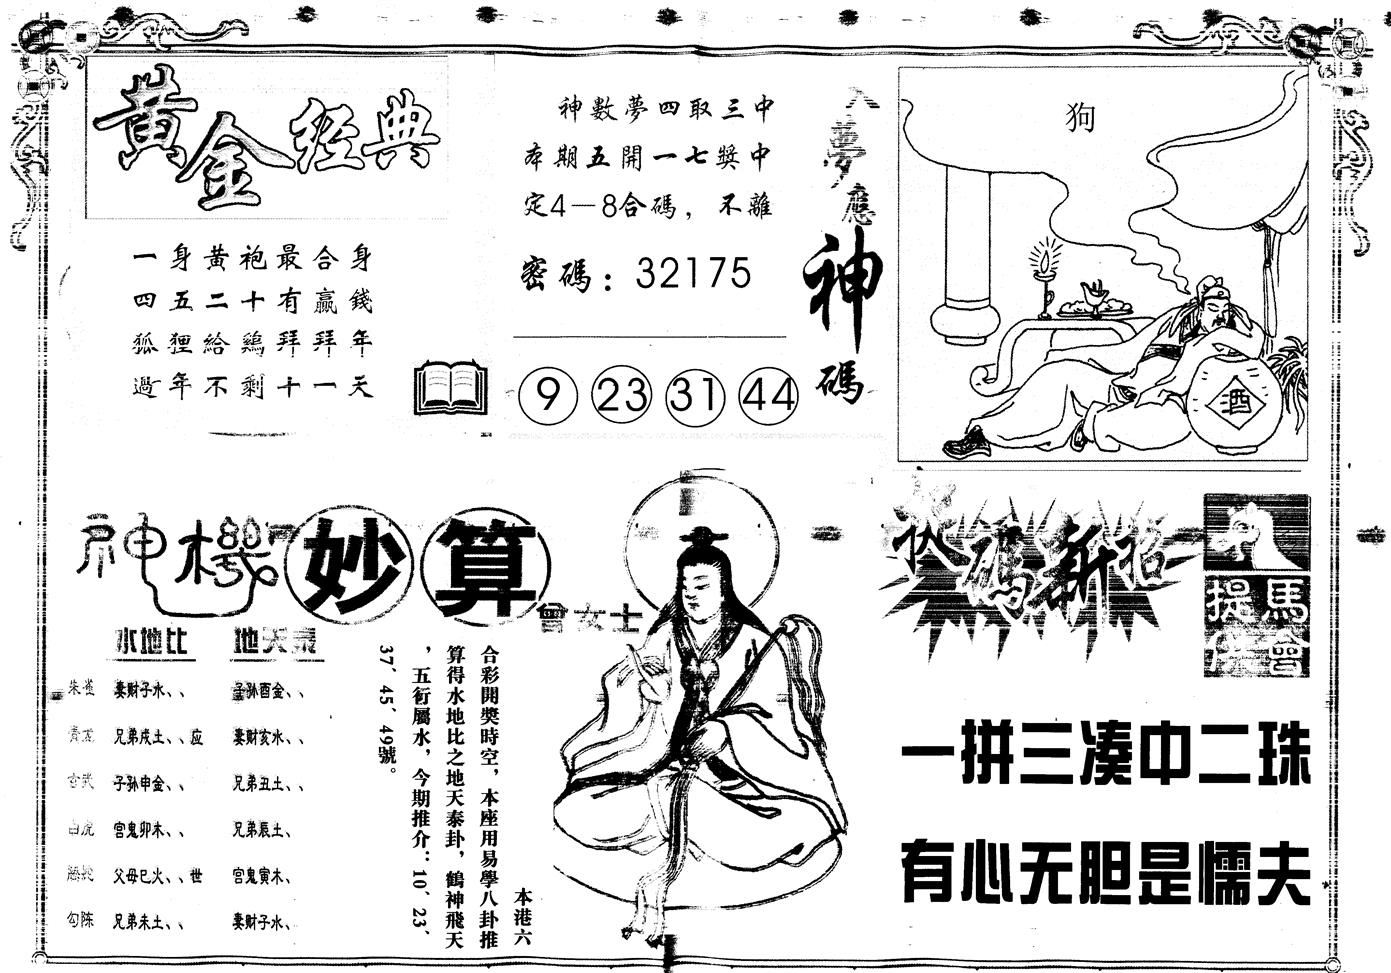 黃金經典
一身黃袍最合身
四五二十有贏錢
狐狸給鷄拜拜年
過年不剩十一天
神數夢四取三中
本期五開一七獎中
定4—8合碼，不離
密碼：32175
9 23 31 44
入夢應神碼
狗
酒
神機妙算
曾女士
水地比 地天泰
朱雀 妻财子水、、 子孙酉金、、
青龙 兄弟戌土、、应 妻财亥水、、
玄武 子孙申金、、 兄弟丑土、、
白虎 官鬼卯木、、 兄弟辰土、
螣蛇 父母巳火、、世 官鬼寅木、
勾陈 兄弟未土、、 妻财子水、
本港六
合彩開獎時空，本座用易學八卦推
算得水地比之地天泰卦，鶴神飛天
，五衍屬水，今期推介：10、23、
37、45、49號。
碼新招
馬會提供
一拼三凑中二珠
有心无胆是懦夫